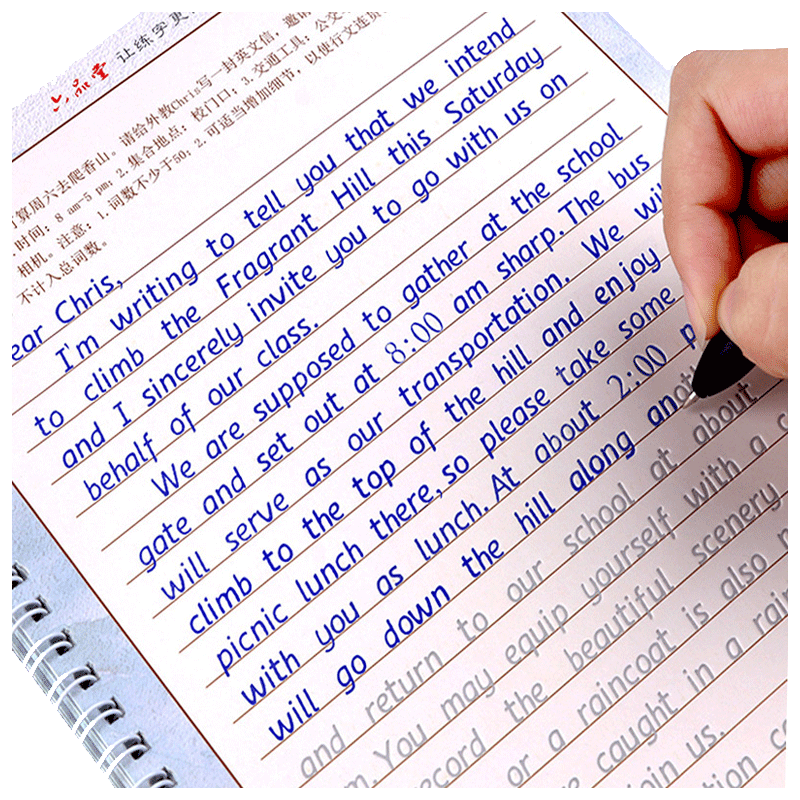 六品堂 让练字更
算周六去爬香山。请给外教Chris写一封英文信，邀请
时间：8 am-5 pm；2.集合地点：校门口；3.交通工具：公交
相机。注意：1.词数不少于50；2.可适当增加细节，以使行文连贯
不计入总词数。
ear Chris,
I'm writing to tell you that we intend
to climb the Fragrant Hill this Saturday
and I sincerely invite you to go with us on
behalf of our class.
We are supposed to gather at the school
gate and set out at 8:00 am sharp. The bus
will serve as our transportation. We wil
climb to the top of the hill and enjoy
picnic lunch there, so please take some
with you as lunch. At about 2:00 p
will go down the hill along anoth
and return to our school at about
m. You may equip yourself with a c
ecord the beautiful scenery
or a raincoat is also n
e caught in a rain
join us.
tion c